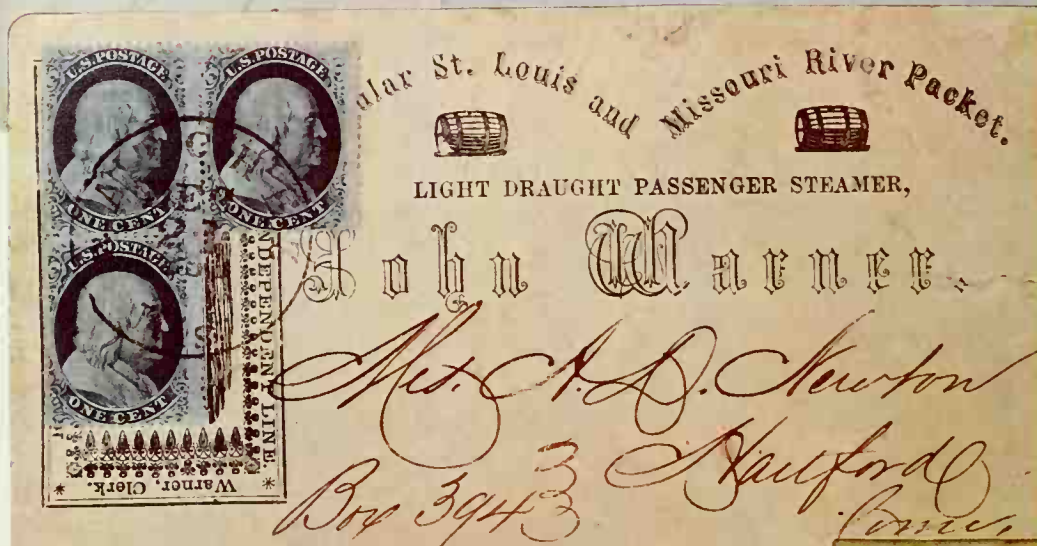 U.S. POSTAGE
ONE CENT
U.S. POSTAGE
ONE CENT
U.S. POSTAGE
ONE CENT
ular St. Louis and Missouri River Packet.
LIGHT DRAUGHT PASSENGER STEAMER,
John Warner.
NDEPENDENT LINE.
* Warner, Clerk. *
A. D. Newton
Hartford
Conn.
Box 3943